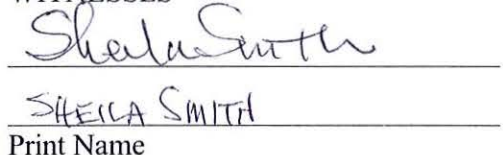 WITNESSES
Sheila Smith
SHEILA SMITH
Print Name